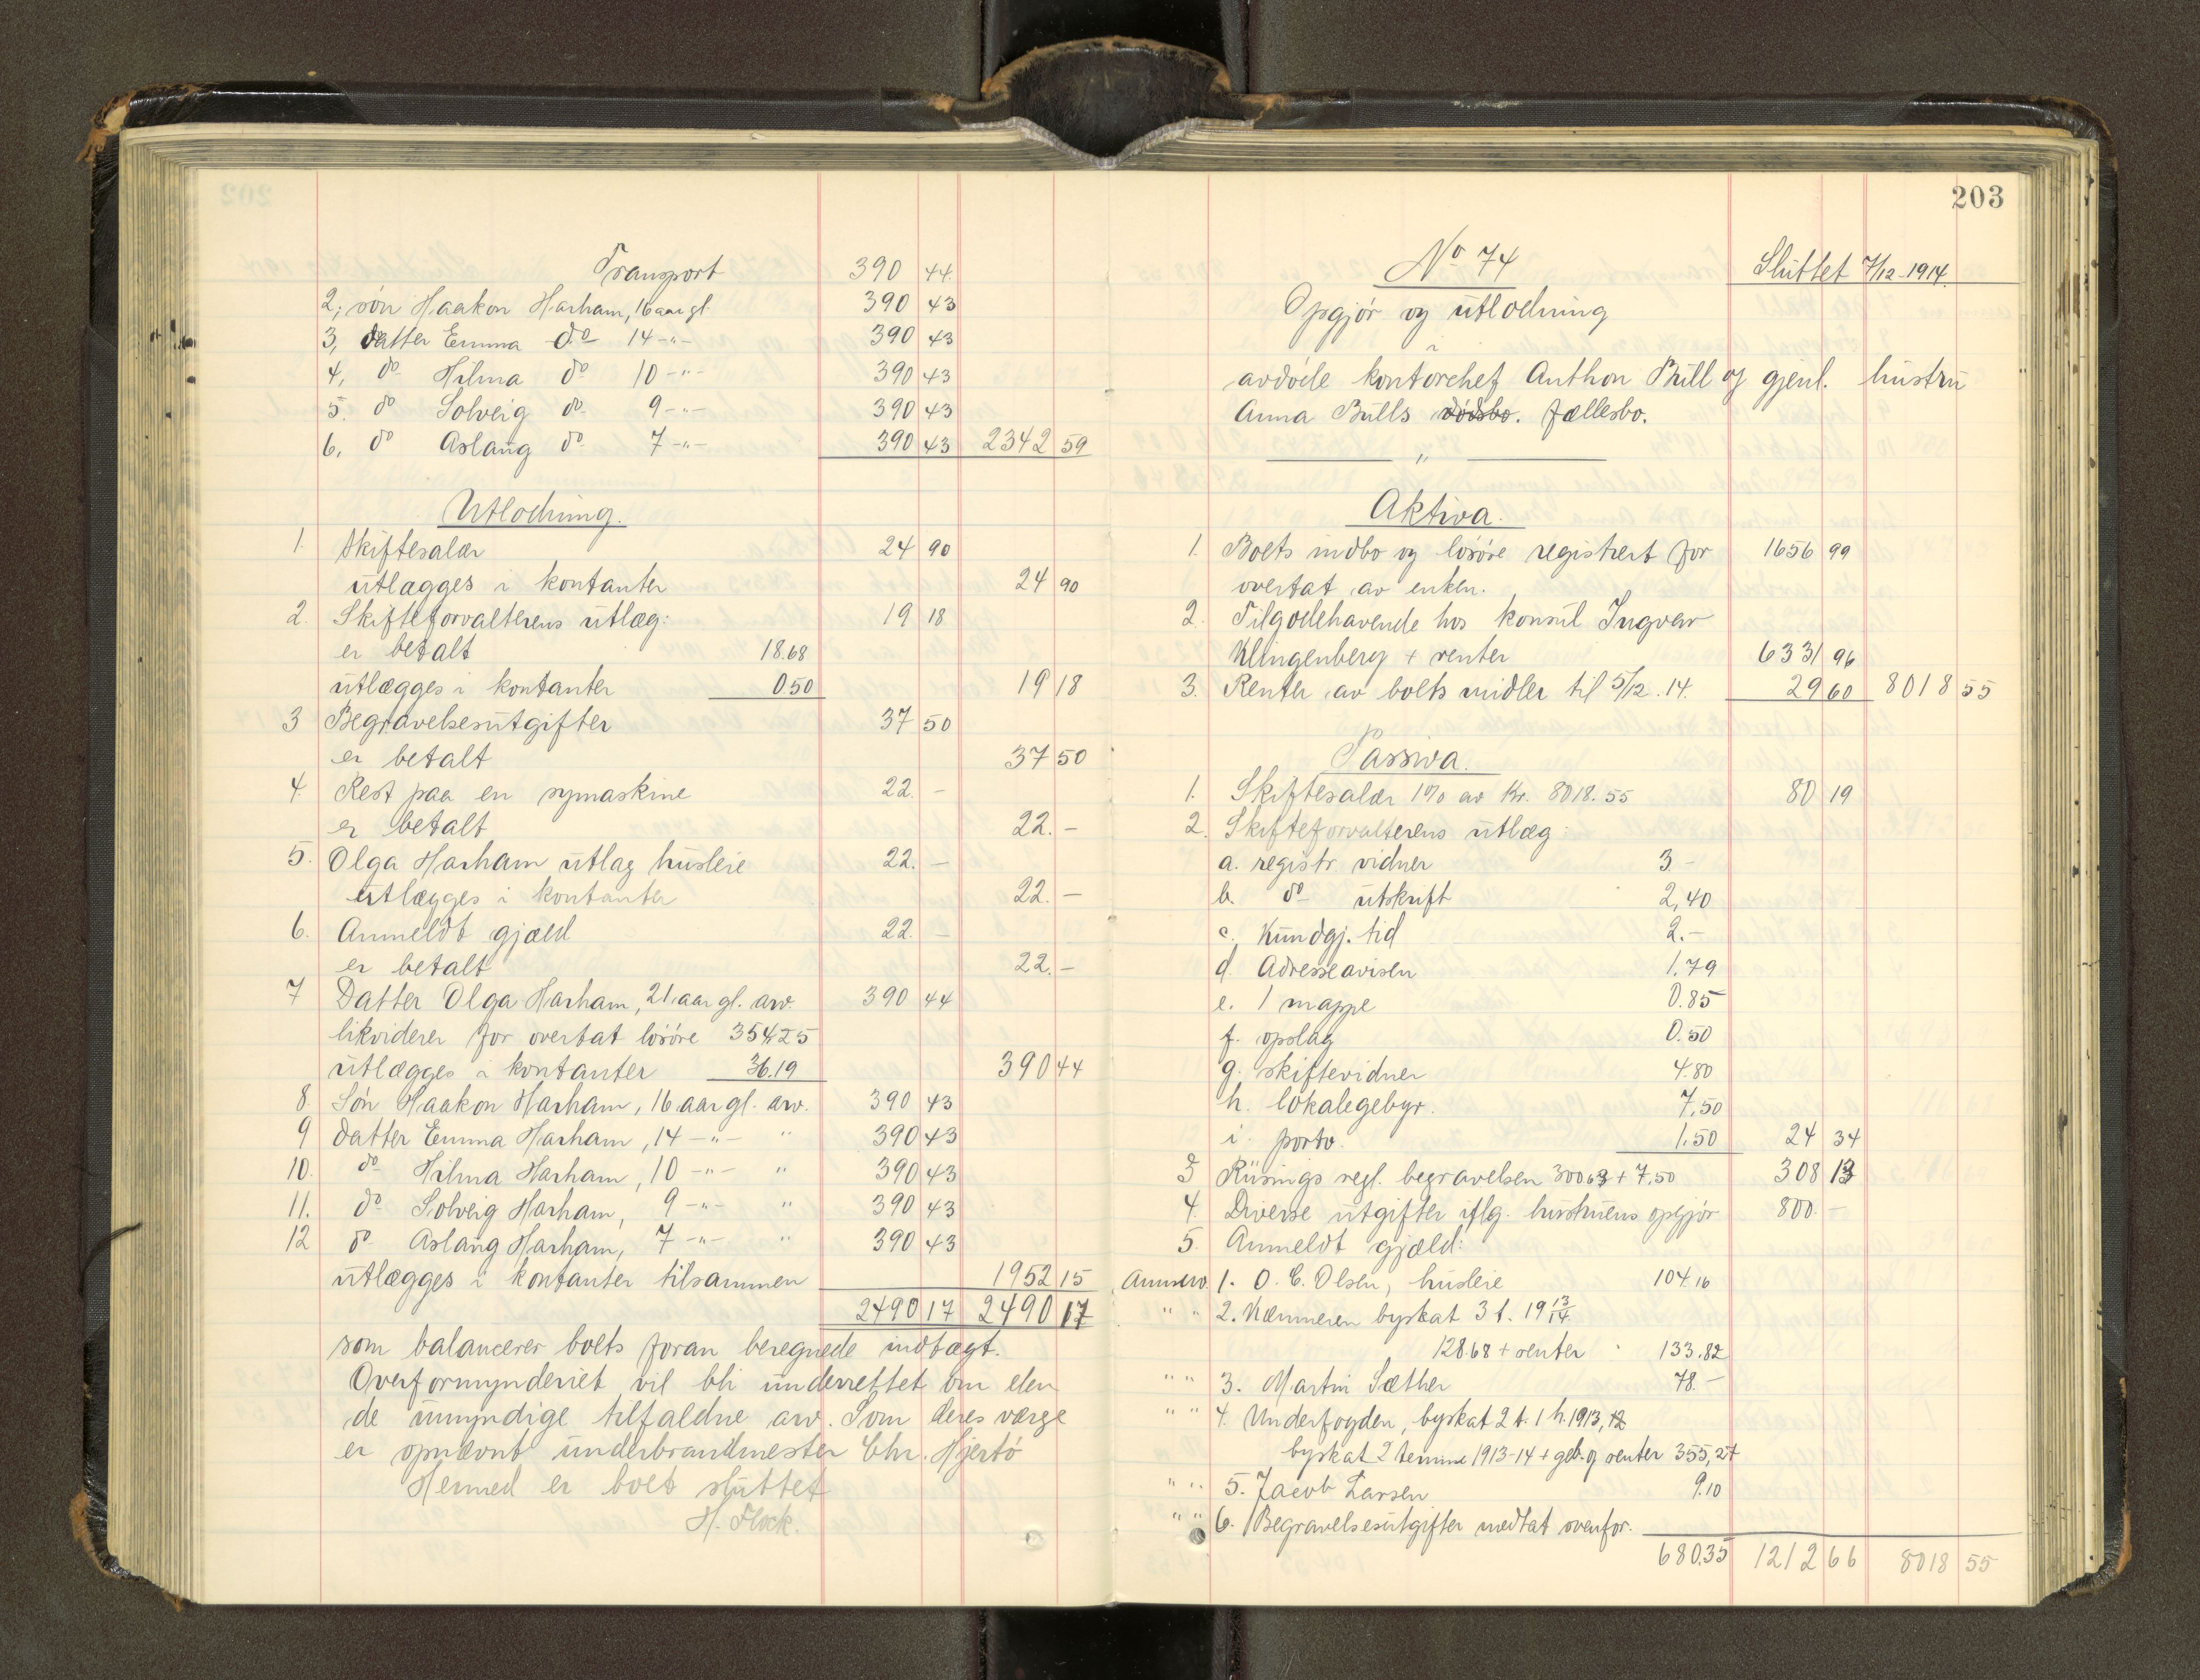 Transport 390 44.
2, søn Haakon Harham, 16 aar gl. 390 43
3, datter Emma do 14 -"- 390 43
4, do Hilma do 10 -"- 390 43
5. do Solveig do 9 -"- 390 43
6, do Aslaug do 7 -"- 390 43 2342 59
Utlodning.
1. Skiftesalær 24 90
utlægges i kontanter 24 90
2. Skifteforvalterens utlæg: 19 18
er betalt 18.68
utlægges i kontanter 0.50 19 18
3 Begravelsesutgifter 37 50
er betalt 37 50
4. Rest paa en symaskine 22. -
er betalt 22. -
5. Olga Harham utlag husleie 22. -
utlægges i kontanter 22. -
6. Anmeldt gjæld 22. -
er betalt 22. -
7 Datter Olga Harham, 21 aar gl. arv. 390 44
likviderer for overtat løsøre 354.25
utlægges i kontanter 36.19 390 44
8. Søn Haakon Harham, 16 aar gl. arv. 390 43
9 datter Emma Harham, 14 -"- " 390 43
10. do Hilma Harham, 10 -"- " 390 43
11. do Solveig Harham, 9 -"- " 390 43
12 do Aslaug Harham, 7 -"- " 390 43
utlægges i kontanter tilsammen 1952 15
2490 17 2490 17
som balancerer boets foran beregnede indtægt.
Overformynderiet vil bli underrettet om den
de umyndige tilfaldne arv. Som deres værge
er opnævnt underbrandmester Chr. Hjertø
Hermed er boet sluttet
H. Flock.
203
No 74 Sluttet 7/12 1914.
Opgjør og utlodning
i
avdøde kontorchef Anthon Bull og gjenl. hustru
Anna Bulls dødsbo. fællesbo.
"
Aktiva.
1. Boets indbo og løsøre registrert for 1656 99
overtat av enken.
2. Tilgodehavende hos konsul Ingvar
Klingenberg + renter 6331 96
3. Renter av boets midler til 5/12. 14. 29 60 8018 55
Passiva.
1. Skiftesalær 1% av Kr. 8018.55 80 19
2. Skifteforvalterens utlæg:
a. registr. vidner 3 -
b. do utskrift 2,40
c. Kundgj. tid 2.-
d. Adresseavisen 1.79
e. 1 mappe 0.85
f. opslag 0.50
g. skiftevidner 4.80
h. lokalegebyr. 7,50
i. porto. 1.50 24 34
3 Rüsings regl. begravelsen 300 63 + 7.50 308 13
4. Diverse utgifter iflg. hustruens opgjør 800. -
5. Anmeldt gjæld:
1. O. C. Olsen, husleie 104.16
" " 2. Kæmneren byskat 3 t. 19 13/14
128.68 + renter 133.82
" " 3. Martin Sæther 78.-
" " 4. Underfogden, byskat 2 t. 1 h. 1913, 12
byskat 2 termine 1913-14 + geb. og renter 355,27
" " 5. Jacob Larsen 9.10
" " 6. Begravelsesutgifter medtat ovenfor.
680.35 1212 66 8018 55